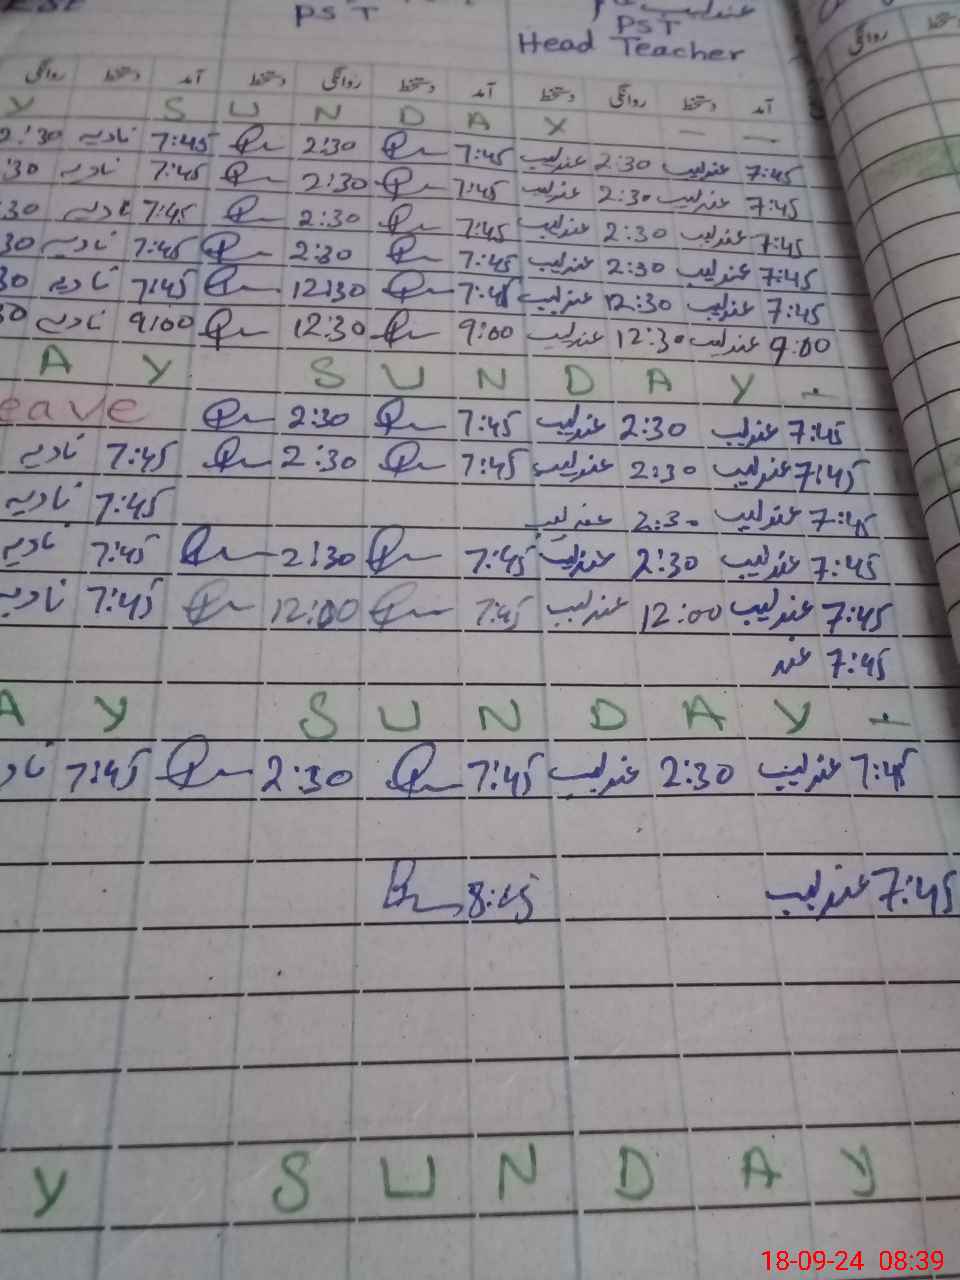 PST عندلیب
PST
Head Teacher
آمد دستخط روانگی دستخط آمد دستخط روانگی دستخط آمد دستخط روانگی
Y S U N D A Y — —
7:45 عندلیب 2:30 عندلیب 7:45 2:30 7:45 نادیہ 2:30
7:45 عندلیب 2:30 عندلیب 7:45 2:30 7:45 نادیہ :30
7:45 عندلیب 2:30 عندلیب 7:45 2:30 7:45 نادیہ :30
7:45 عندلیب 2:30 عندلیب 7:45 2:30 7:45 نادیہ 30
7:45 عندلیب 12:30 عندلیب 7:45 12:30 7:45 نادیہ 30
9:00 عندلیب 12:30 عندلیب 9:00 12:30 9:00 نادیہ 30
A Y S U N D A Y
7:45 عندلیب 2:30 عندلیب 7:45 2:30 eave
7:45 عندلیب 2:30 عندلیب 7:45 2:30 7:45 نادیہ
7:45 عندلیب 2:30 عندلیب 7:45 نادیہ
7:45 عندلیب 2:30 عندلیب 7:45 2:30 7:45 نادیہ
7:45 عندلیب 12:00 عندلیب 7:45 12:00 7:45 نادیہ
7:45 عند
A Y S U N D A Y
7:45 عندلیب 2:30 عندلیب 7:45 2:30 7:45 ناد
7:45 عندلیب 8:45
Y S U N D A Y
18-09-24 08:39